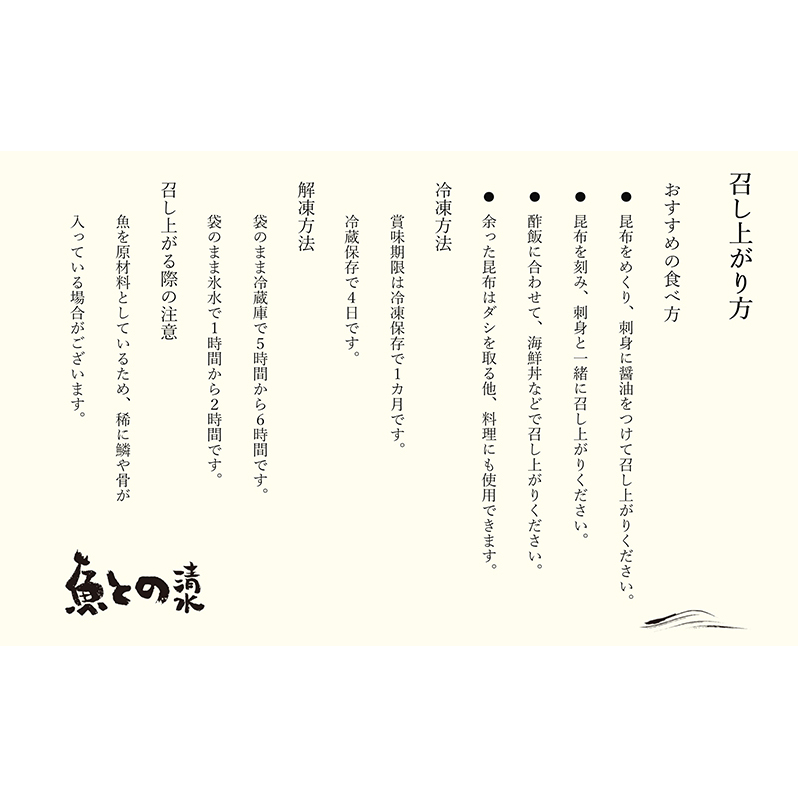 召し上がり方
おすすめの食べ方
● 昆布をめくり、刺身に醤油をつけて召し上がりください。
● 昆布を刻み、刺身と一緒に召し上がりください。
● 酢飯に合わせて、海鮮丼などで召し上がりください。
● 余った昆布はダシを取る他、料理にも使用できます。
冷凍方法
賞味期限は冷凍保存で１カ月です。
冷蔵保存で４日です。
解凍方法
袋のまま冷蔵庫で５時間から６時間です。
袋のまま氷水で１時間から２時間です。
召し上がる際の注意
魚を原材料としているため、稀に鱗や骨が
入っている場合がございます。
魚との清水